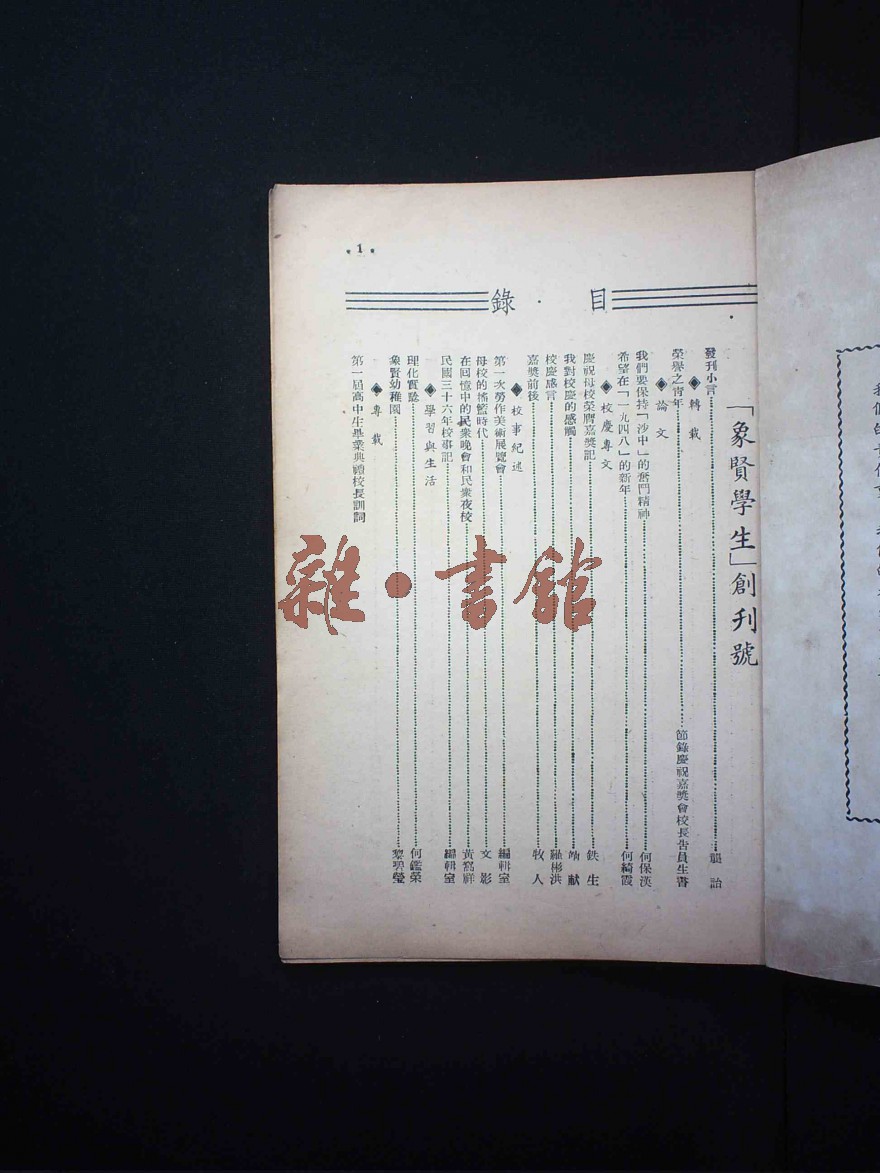 1
目·錄
「象賢學生」創刊號
發刊小言 龔詒
◆轉載
榮譽之青年 節錄慶祝嘉獎會校長告員生書
◆論文
我們要保持「沙中」的奮鬥精神 何保漢
希望在「一九四八」的新年 何綺霞
◆校慶專文
慶祝母校榮膺嘉獎記 鉄生
我對校慶的感觸 献
校慶感言 羅彬洪
嘉獎前後 牧人
◆校事紀述
第一次勞作美術展覽會 編輯室
母校的搖籃時代 文影
在回憶中的民衆晚會和民衆夜校 黃寫祥
民國三十六年校事記 編輯室
◆學習與生活
理化實驗 何鑑榮
象賢幼稚園 黎碧瑩
◆專載
第一屆高中生畢業典禮校長訓詞
雜·書館